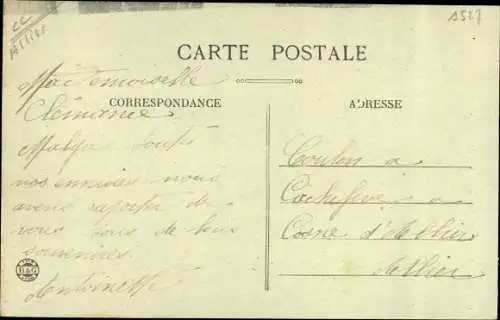 cc
Allier
1527
CARTE POSTALE
CORRESPONDANCE
ADRESSE
Mademoiselle
Clémance
Malgré toutes
nos ennuies nous
avons reporter de
vous sous de bons
souvenires
Antoinette
B&G
Coulon a
a
Cosne d'Allier
Allier